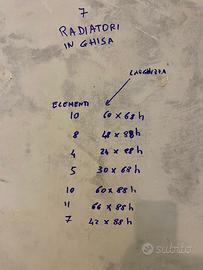 7
RADIATORI
IN GHISA
LARGHEZZA
ELEMENTI
10 60 x 68 h
8 48 x 88 h
4 24 x 88 h
5 30 x 68 h
10 60 x 88 h
11 66 x 88 h
7 42 x 88 h
subito